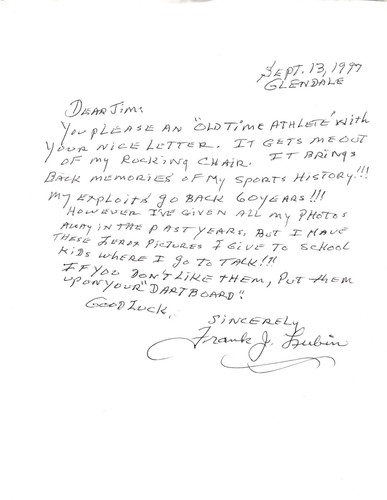 SEPT. 13, 1997
GLENDALE
DEAR JIM:
YOU PLEASE AN "OLD TIME ATHLETE" WITH
YOUR NICE LETTER. IT GETS ME OUT
OF MY ROCKING CHAIR. IT BRINGS
BACK MEMORIES OF MY SPORTS HISTORY!!!
MY EXPLOITS GO BACK 60 YEARS!!!
HOWEVER I'VE GIVEN ALL MY PHOTOS
AWAY IN THE PAST YEARS, BUT I HAVE
THESE ZEROX PICTURES I GIVE TO SCHOOL
KIDS WHERE I GO TO TALK!!!
IF YOU DON'T LIKE THEM, PUT THEM
UPON YOUR "DARTBOARD".
GOOD LUCK,
SINCERELY
Frank J. Lubin